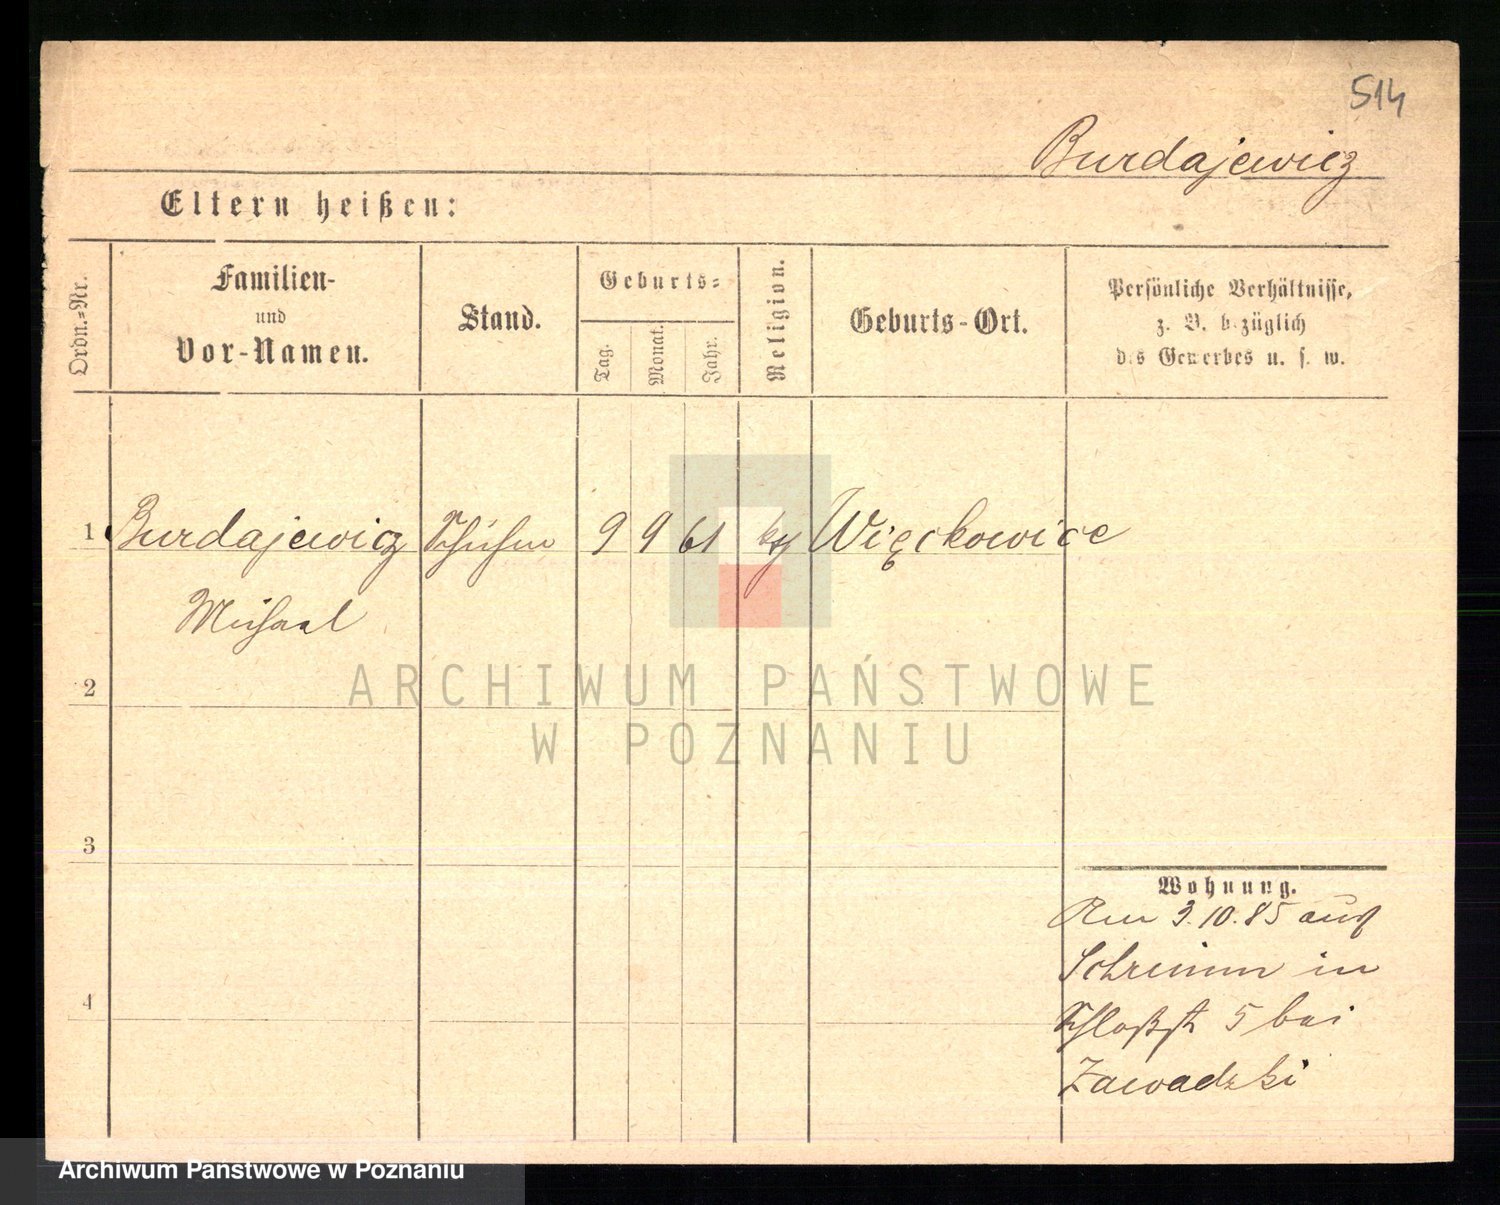 514
Burdajewicz
Eltern heißen:
Ordn.=Nr.
Familien-
und
Vor-Namen.
Stand.
Geburts=
Tag.
Monat.
Jahr.
Religion.
Geburts-Ort.
Persönliche Verhältnisse,
z. B. bezüglich
des Gewerbes u. s. w.
1 Burdajewicz 9 9 61 Więckowice
Michael
2
3
4
Wohnung.
3.10.85 aus
Schrimm in
Schloßstr 5 bei
Zawadzki
ARCHIWUM PAŃSTWOWE
W POZNANIU
Archiwum Państwowe w Poznaniu